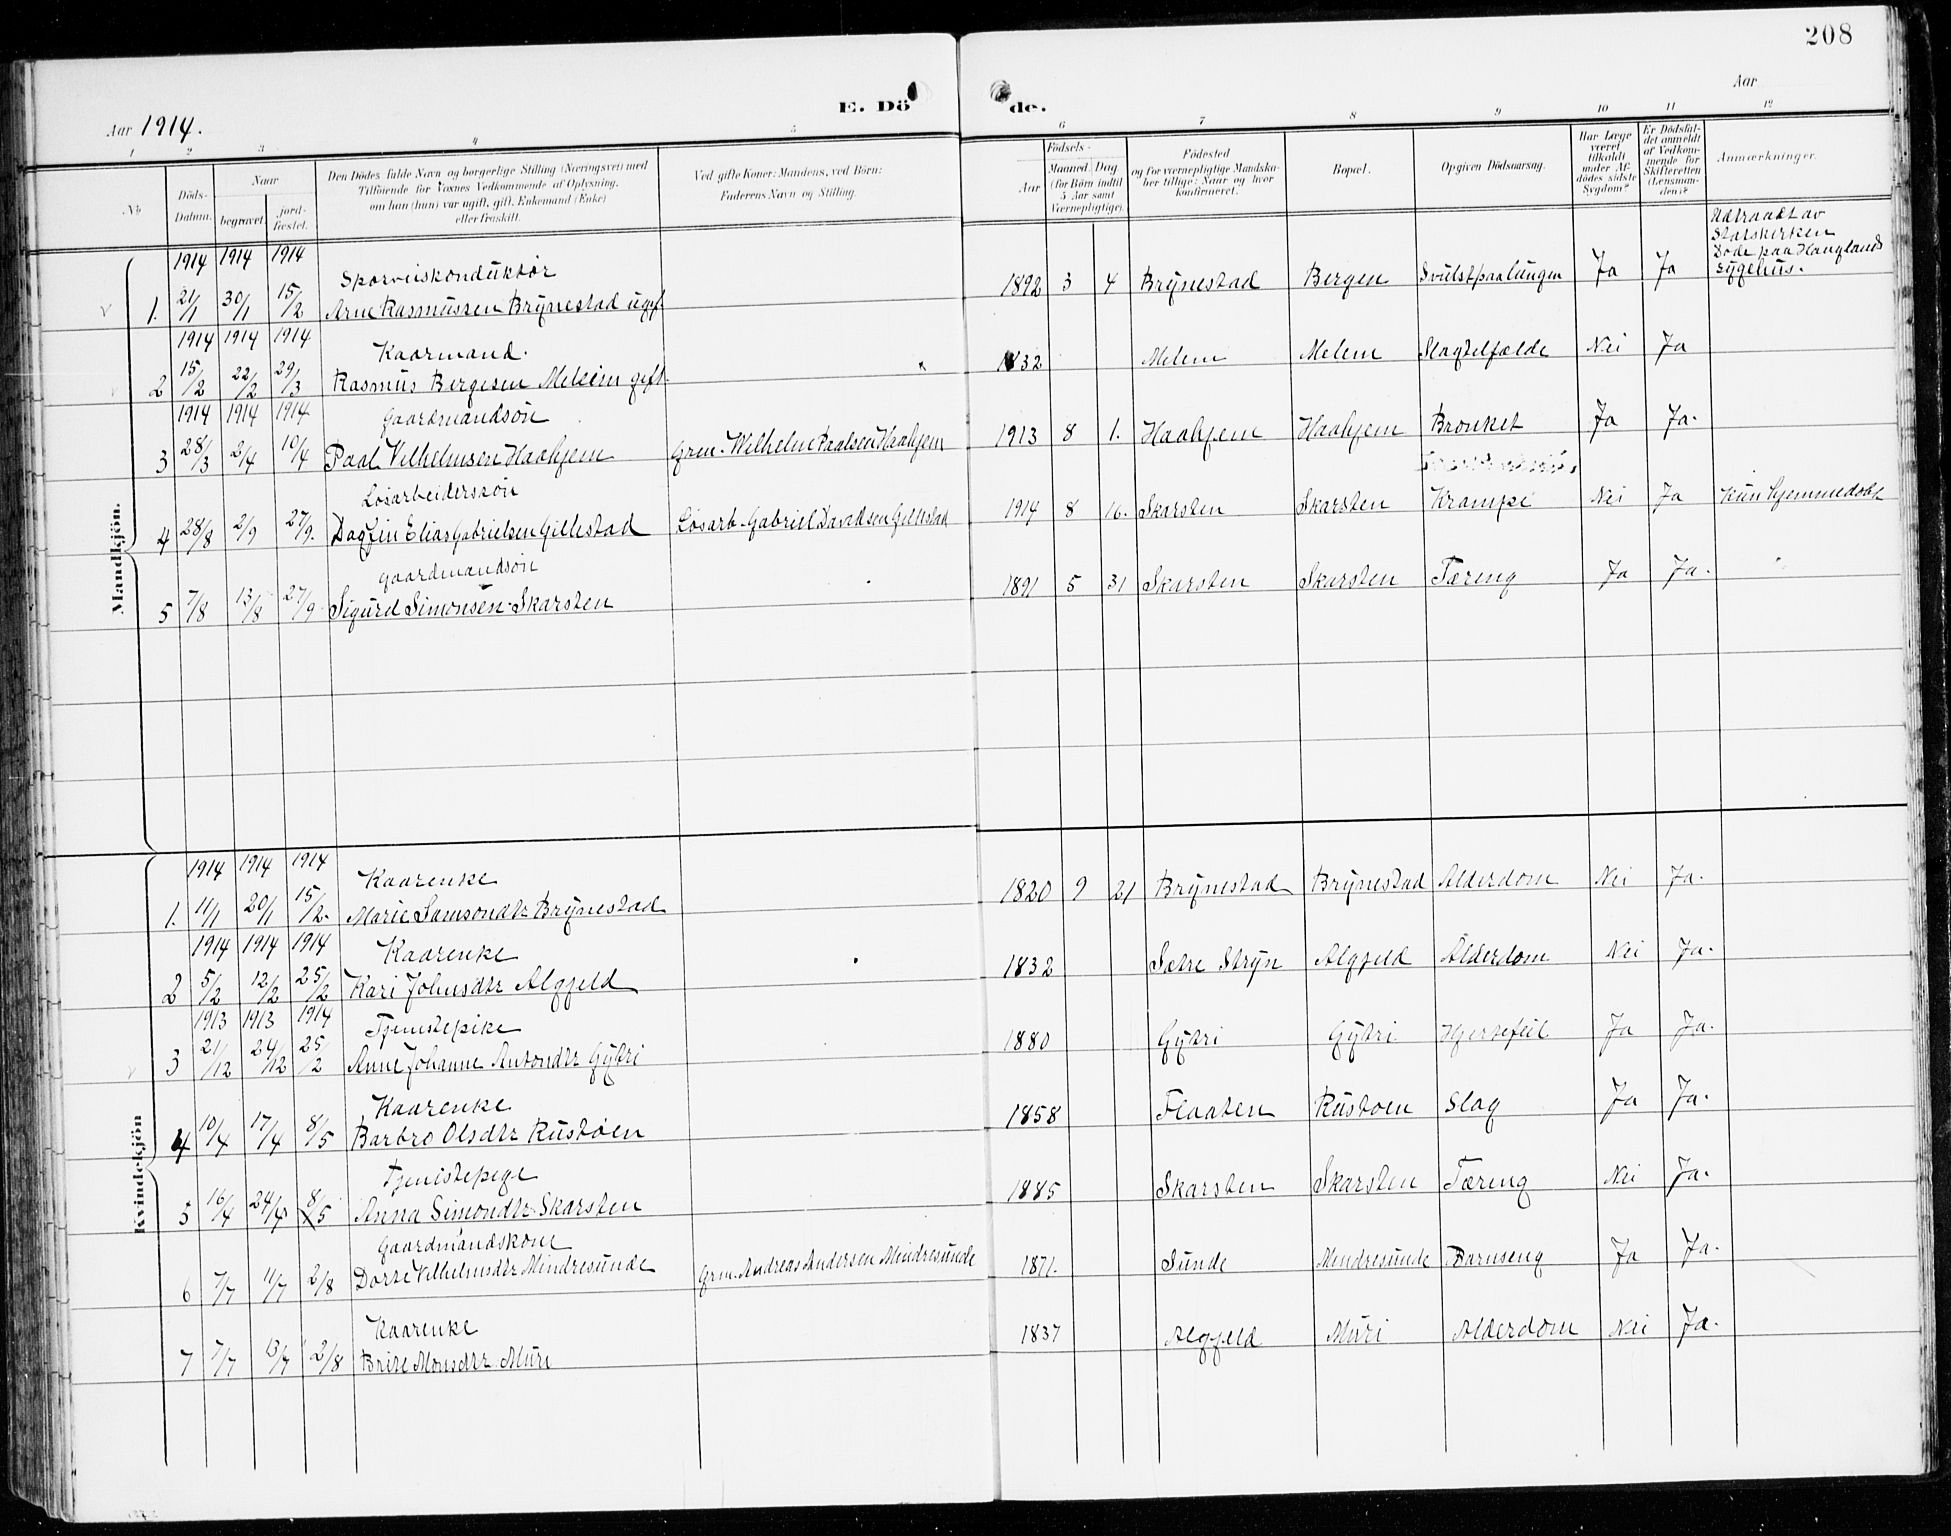 208
Aar 1914.
E. Dö de.
Aar
1 2 3 4 5 6 7 8 9 10 11 12
No
Döds-Datum.
Naar
begravet.
jord-fæstet.
Den Dödes fulde Navn og borgerlige Stilling (Næringsvei) med
Tilföiende for Voxnes Vedkommende af Oplysning,
om han (hun) var ugift, gift, Enkemand (Enke)
eller fraskilt.
Ved gifte Koner: Mandens, ved Börn:
Faderens Navn og Stilling.
Födsels-
Aar
Maaned. Dag.
(for Börn indtil
5 Aar samt
Værnepligtige).
Födested
og for værnepligtige Mandska-
ber tillige: Naar og hvor
konfirmeret.
Bopæl.
Opgiven Dödsaarsag.
Har Læge
været
tilkaldt
under Af-
dödes sidste
Sygdom?
Er Dödsfal-
det anmeldt
af Vedkom-
mende for
Skifteretten
(Lensman-
den)?
Anmærkninger.
Mandkjön.
1914 1914 1914 Sporveiskonduktør
1. 21/1 30/1 15/2 Arne Rasmussen Brynestad ugf. 1892 3 4 Brynestad Bergen Svulst paa lungen Ja Ja Udtraadt av
Statskirken
Døde paa Hauglands
sygehus.
1914 1914 1914 Kaarmand.
2 15/2 22/2 29/3 Rasmus Bergesen Melem gift. 1832 Melem Melem Slagtilfælde Nei Ja
1914 1914 1914 Gaardmandsøn
3 28/3 2/4 10/4 Paal Vilhelmsen Haahjem Grm. Wilhelm Paalsen Haahjem 1913 8 1. Haahjem Haahjem Bronket Ja Ja.
Løsarbeiderssøn
4 28/8 2/9 27/9. Dagfin Elias Gabrielsen Gillestad Løsarb. Gabriel Davidsen Gillestad 1914 8 16. Skarsten Skarsten Krampe Nei Ja Kun hjemmedøbt
Gaardmandsøn
5 7/8 13/8 27/9. Sigurd Simonsen Skarsten 1891 5 31 Skarsten Skarsten Tæring Ja Ja.
Kvindekjön
1914 1914 1914 Kaarenke
1. 11/1 20/1 15/2. Marie Samsondtr Brynestad 1820 9 21 Brynestad Brynestad Alderdom Nei Ja.
1914 1914 1914 Kaarenke
2 5/2 12/2 25/2 Kari Johnsdtr Algjeld 1832 Sætre Stryn Algjeld Alderdom Nei Ja.
1913 1913 1914 Tjenstepike
3 21/12 24/12 25/2 Anne Johanne Antondtr Gytri 1880 Gytri Gytri Hjertefeil Ja Ja.
Kaarenke
4 10/4 17/4 8/5 Barbro Olsdtr Rustøen 1858 Flaaten Rustøen Slag Ja Ja.
Tjenistepige
5 16/4 24/4 8/5 Anna Simondtr Skarsten 1885 Skarsten Skarsten Tæring Nei Ja.
Gaardmandskone
6 7/7 11/7 2/8 Dorte Vilhelmdtr Mindresunde Grm. Andreas Andersen Mindresunde 1871. Sunde Mindresunde Barnseng Ja Ja.
Kaarenke
7 7/7 13/7 2/8 Brite Monsdtr Muri 1837 Algjeld Muri Alderdom Nei Ja.